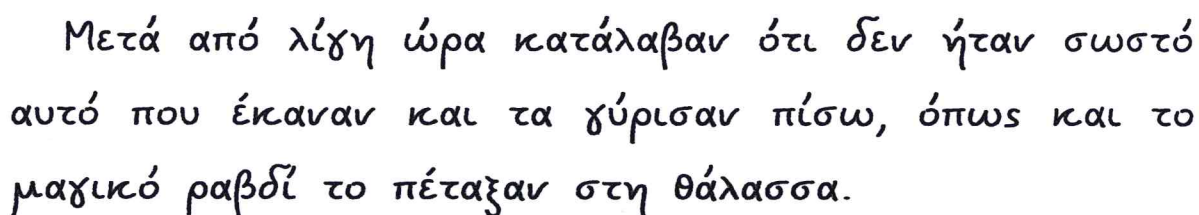 Μετά από λίγη ώρα κατάλαβαν ότι δεν ήταν σωστό
αυτό που έκαναν και τα γύρισαν πίσω, όπως και το
μαγικό ραβδί το πέταξαν στη θάλασσα.